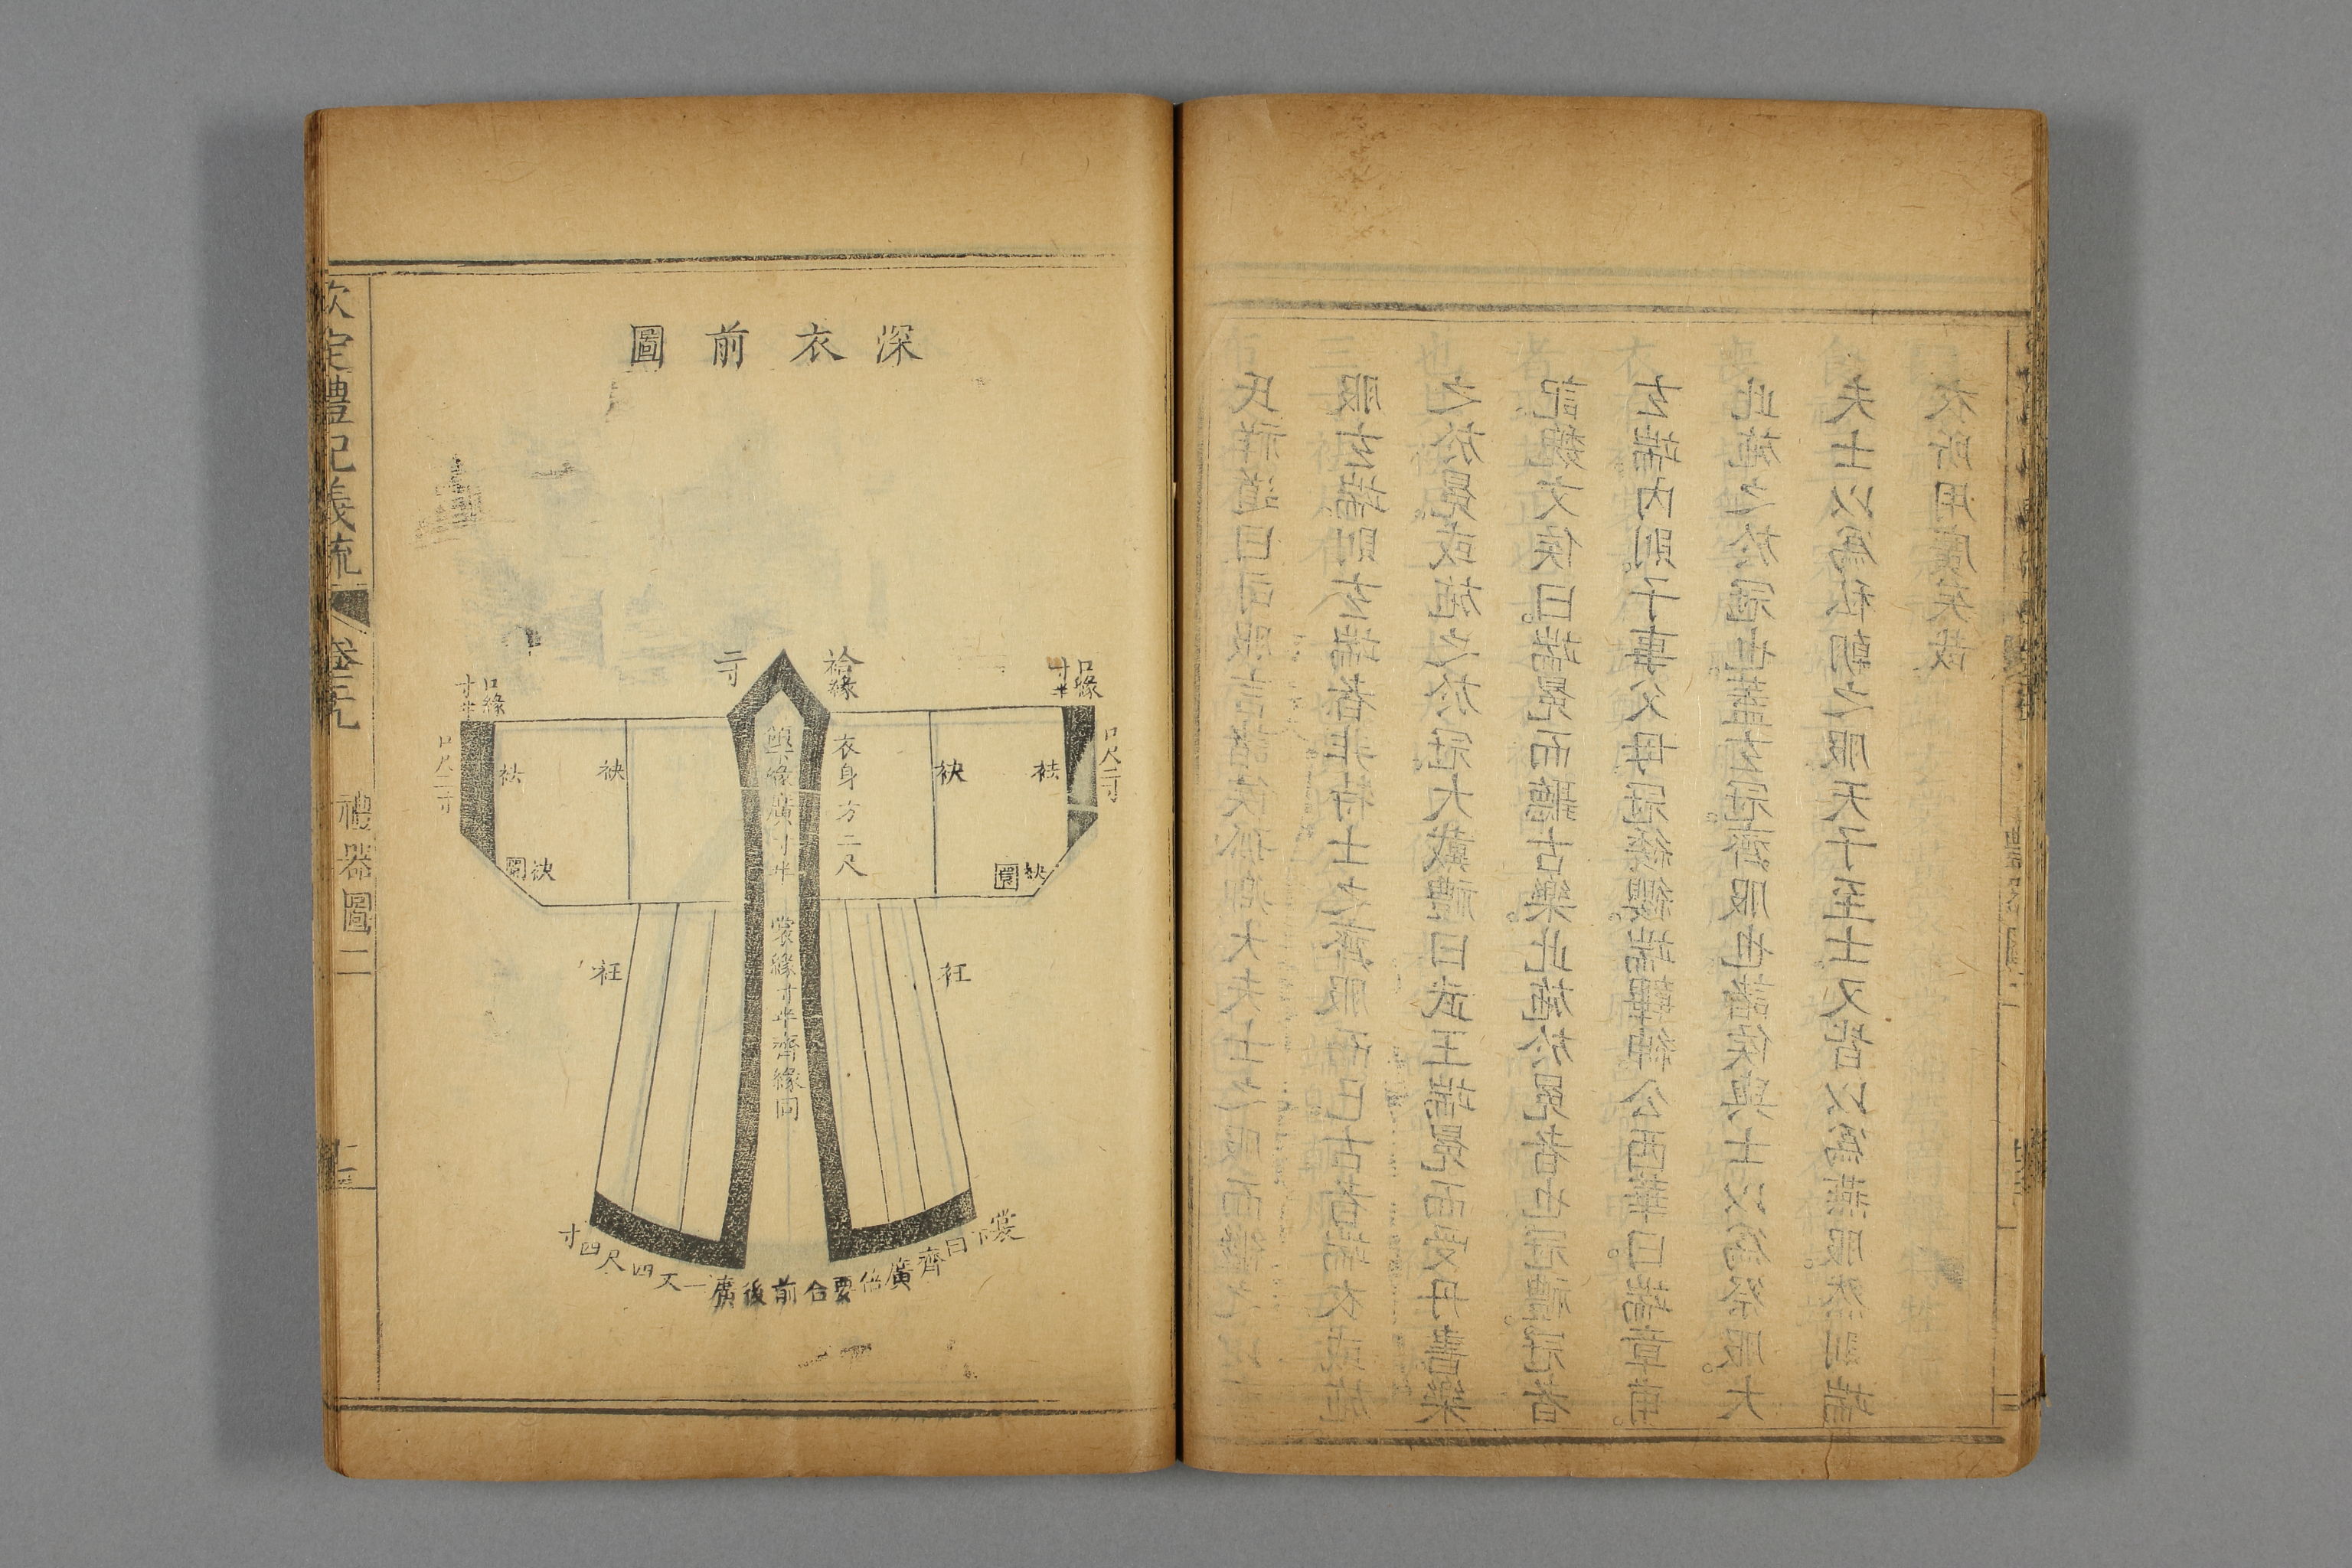 氏祥道曰司服言諸侯孤卿大夫士之服而繼之以
服玄端則玄端者非特士之齊服而已古者端衣或施
之於冕或施之於冠大戴禮曰武王端冕而受丹書樂
記魏文侯曰端冕而聽古樂此施於冕者也冠禮冠者
玄端內則子事父母冠緌纓端韠紳公西華曰端章甫
此施之於冠也蓋玄冠齊服也諸侯與士以為祭服大
夫士以為私朝之服天子至士又皆以為燕服然則端
衣所用廣矣哉
深衣前圖
口緣
寸半
口尺二寸
袷緣
二寸
口緣
寸半
口尺二寸
袪
袂
袂圜
衣身方二尺
緣廣寸半
裳緣寸半齊緣同
袂
袪
袂圜
衽
衽
裳下曰齊廣倍要合前後廣一丈四尺四寸
欽定禮記義疏
禮器圖二